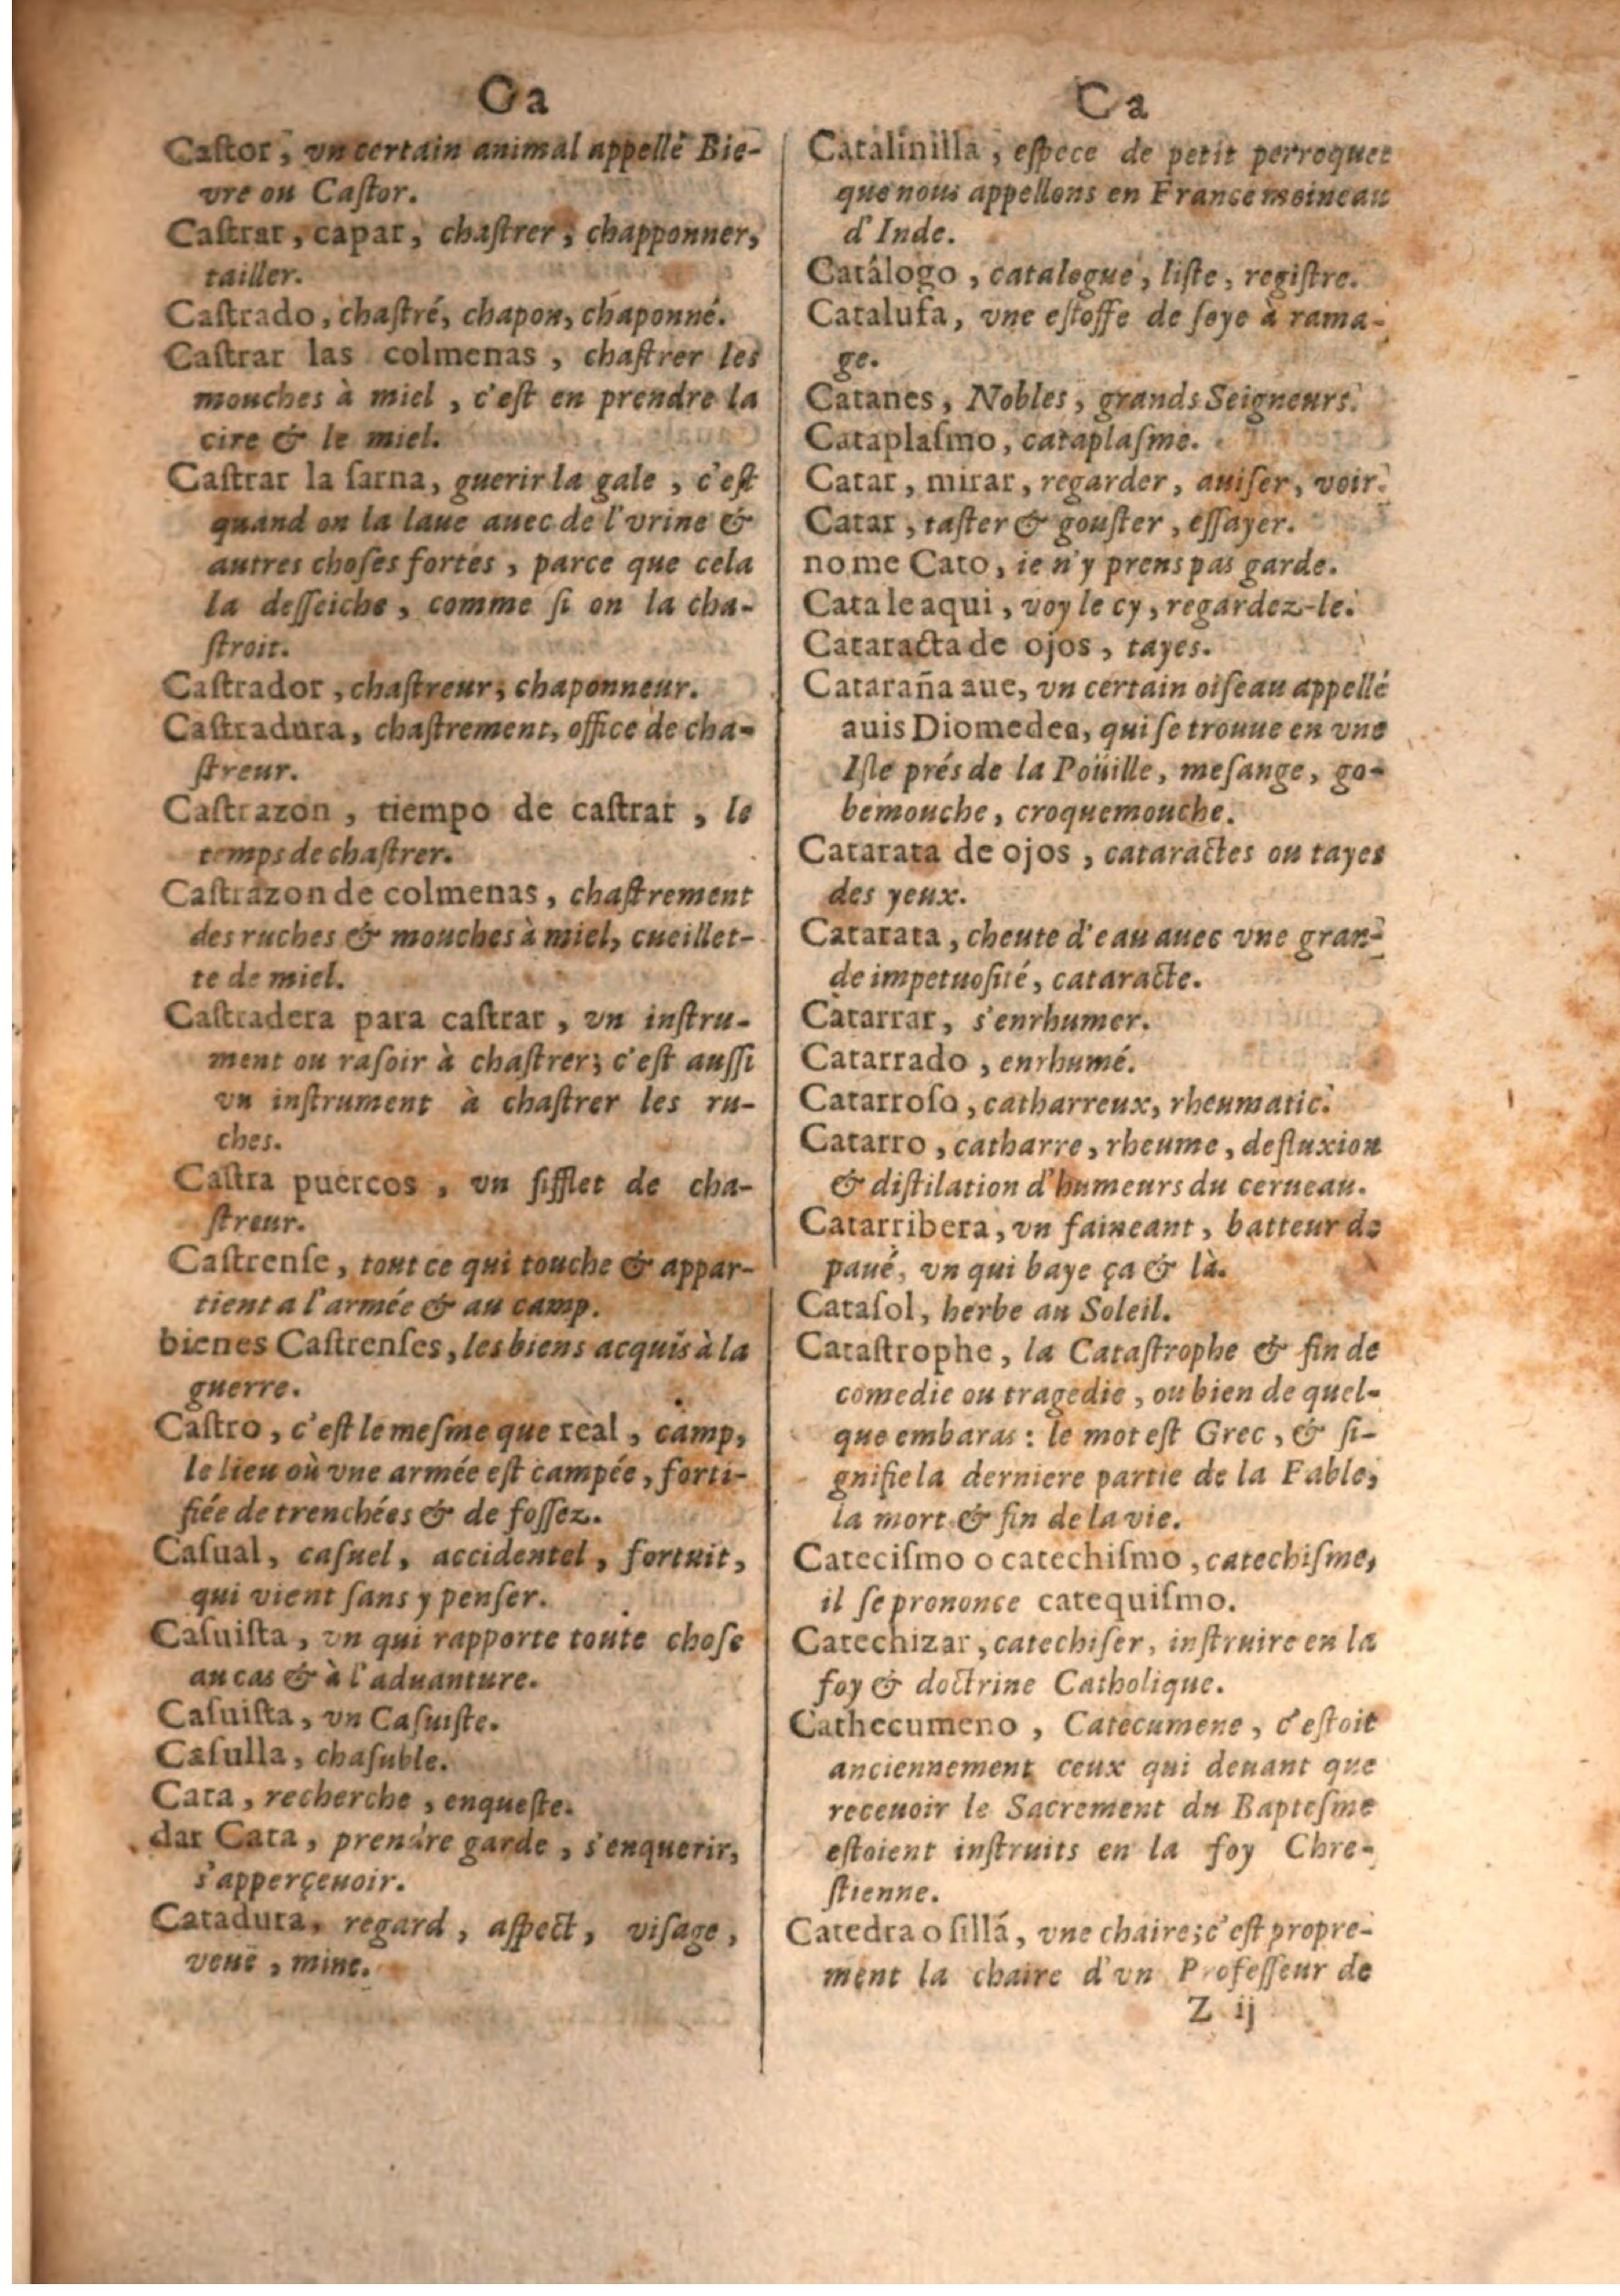 Ca
Castor, vn certain animal appellé Bie-
vre ou Castor.
Castrar, capar, chastrer, chapponner,
tailler.
Castrado, chastré, chapon, chaponné.
Castrar las colmenas, chastrer les
mouches à miel, c'est en prendre la
cire & le miel.
Castrar la sarna, guerir la gale, c'est
quand on la laue auec de l'vrine &
autres choses fortes, parce que cela
la desseiche, comme si on la cha-
stroit.
Castrador, chastreur, chaponneur.
Castradura, chastrement, office de cha-
streur.
Castrazon, tiempo de castrar, le
temps de chastrer.
Castrazon de colmenas, chastrement
des ruches & mouches à miel, cueillet-
te de miel.
Castradera para castrar, vn instru-
ment ou rasoir à chastrer; c'est aussi
vn instrument à chastrer les ru-
ches.
Castra puercos, vn sifflet de cha-
streur.
Castrense, tout ce qui touche & appar-
tient a l'armée & au camp.
bienes Castrenses, les biens acquis à la
guerre.
Castro, c'est le mesme que real, camp,
le lieu où vne armée est campée, forti-
fiée de trenchées & de fossez.
Casual, casuel, accidentel, fortuit,
qui vient sans y penser.
Casuista, vn qui rapporte toute chose
au cas & à l'aduanture.
Casuista, vn Casuiste.
Casulla, chasuble.
Cata, recherche, enqueste.
dar Cata, prendre garde, s'enquerir,
s'apperçeuoir.
Catadura, regard, aspect, visage,
veuë, mine.
Ca
Catalinilla, espece de petit perroquet
que nous appellons en France moineau
d'Inde.
Catálogo, catalogue, liste, registre.
Catalufa, vne estoffe de soye à rama-
ge.
Catanes, Nobles, grands Seigneurs.
Cataplasmo, cataplasme.
Catar, mirar, regarder, auiser, voir.
Catar, taster & gouster, essayer.
no me Cato, ie n'y prens pas garde.
Cata le aqui, voy le cy, regardez-le.
Cataracta de ojos, tayes.
Cataraña aue, vn certain oiseau appellé
auis Diomedea, qui se trouue en vne
Isle prés de la Poüille, mesange, go-
bemouche, croquemouche.
Catarata de ojos, cataractes ou tayes
des yeux.
Catarata, cheute d'eau auec vne gran-
de impetuosité, cataracte.
Catarrar, s'enrhumer.
Catarrado, enrhumé.
Catarroso, catharreux, rheumatic.
Catarro, catharre, rheume, defluxion
& distilation d'humeurs du cerueau.
Catarribera, vn faineant, batteur de
paué, vn qui baye ça & là.
Catasol, herbe au Soleil.
Catastrophe, la Catastrophe & fin de
comedie ou tragedie, ou bien de quel-
que embaras: le mot est Grec, & si-
gnifie la derniere partie de la Fable,
la mort & fin de la vie.
Catecismo o catechismo, catechisme,
il se prononce catequismo.
Catechizar, catechiser, instruire en la
foy & doctrine Catholique.
Cathecumeno, Catecumene, c'estoit
anciennement ceux qui deuant que
receuoir le Sacrement du Baptesme
estoient instruits en la foy Chre-
stienne.
Catedra o silla, vne chaire; c'est propre-
ment la chaire d'vn Professeur de
Z ij